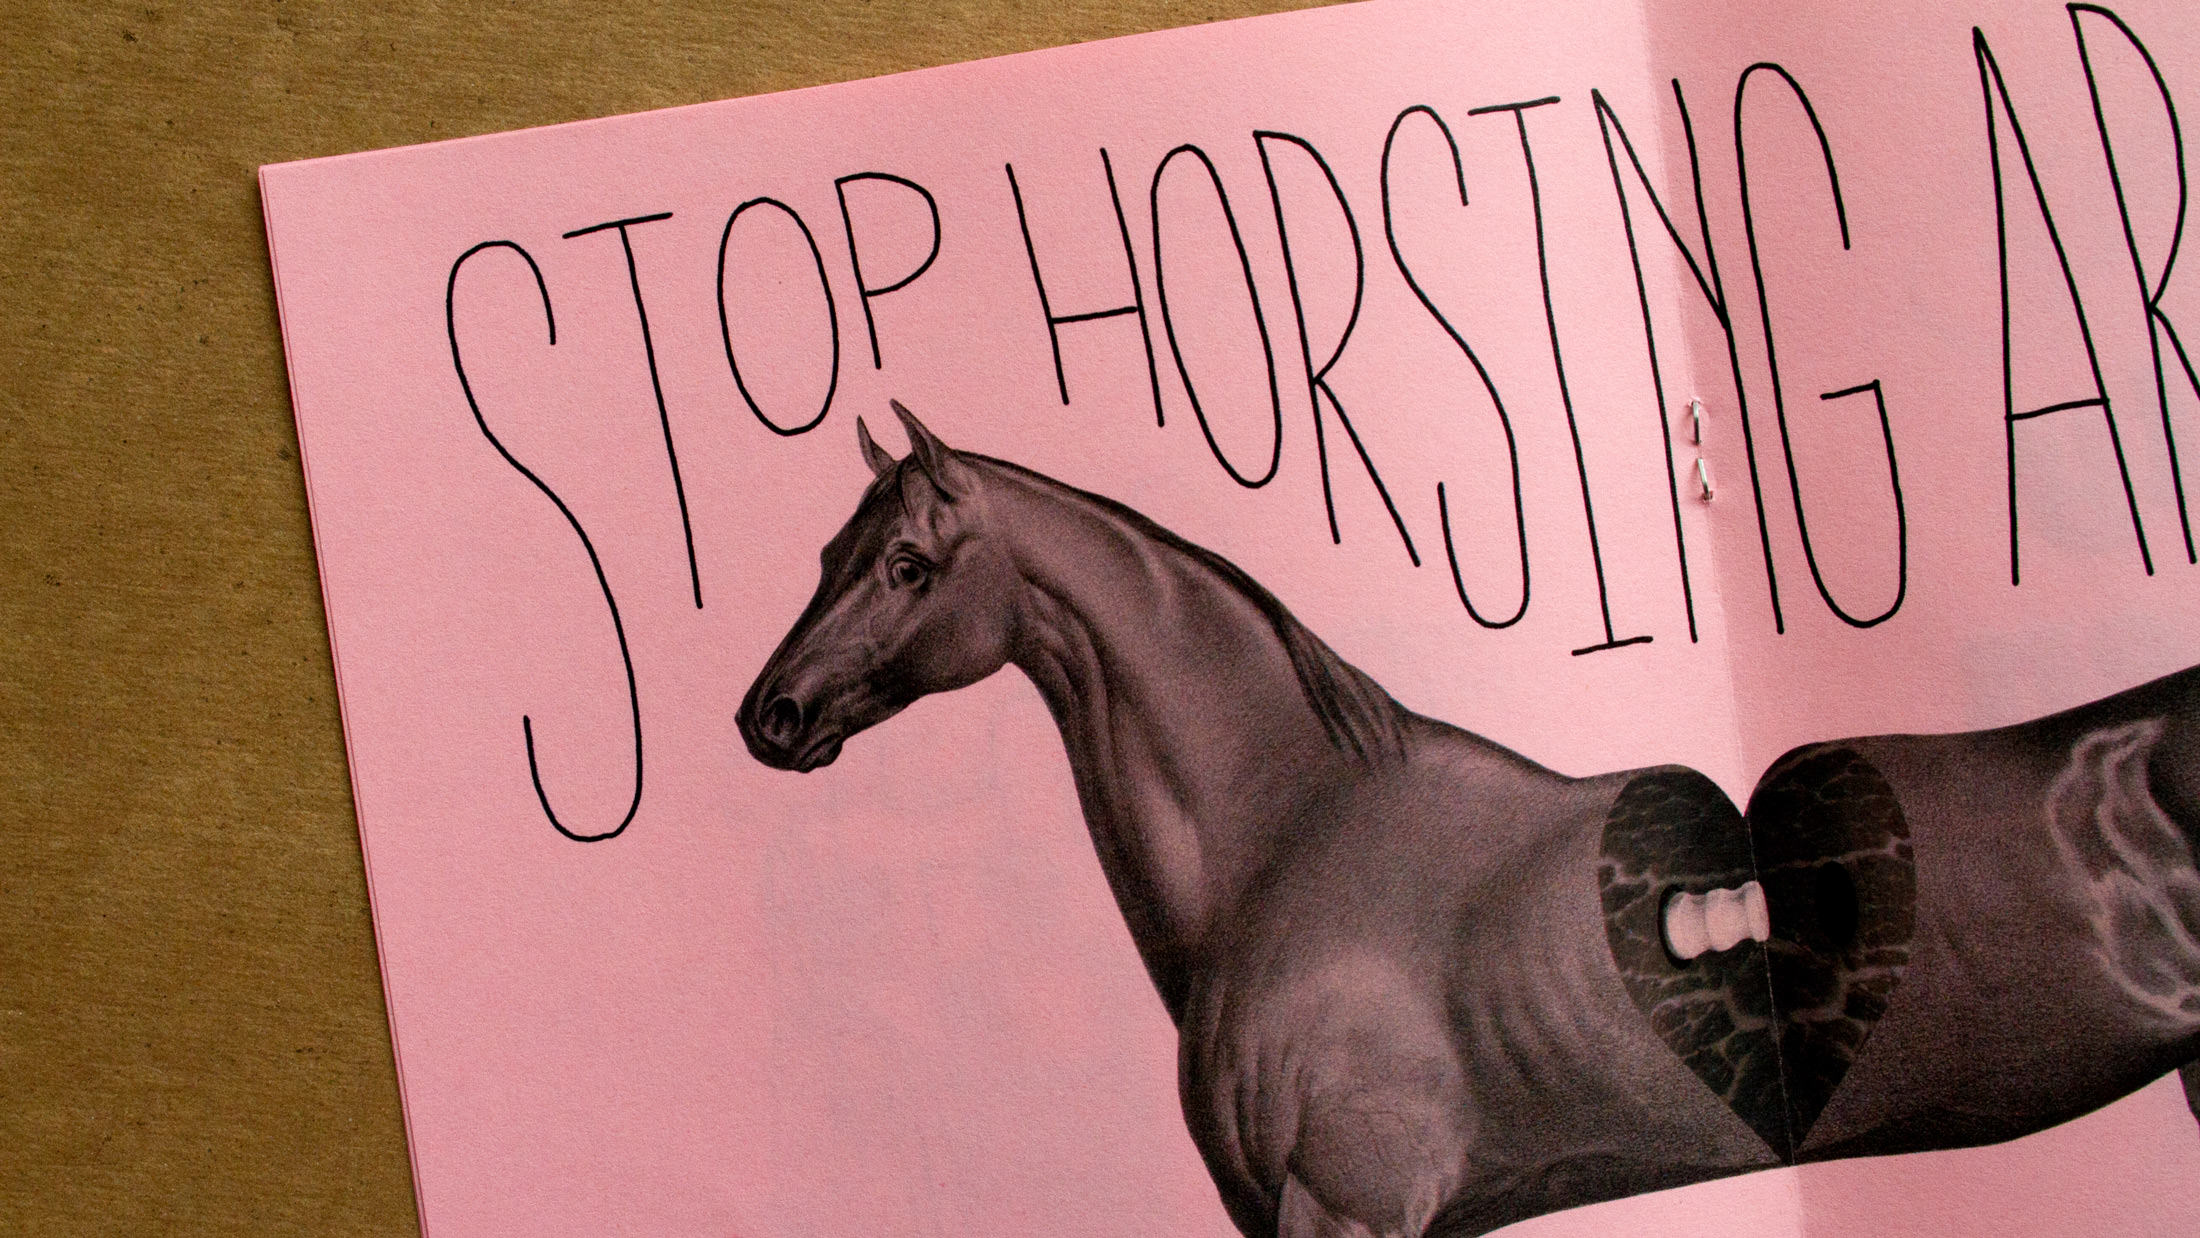 STOP HORSING AR